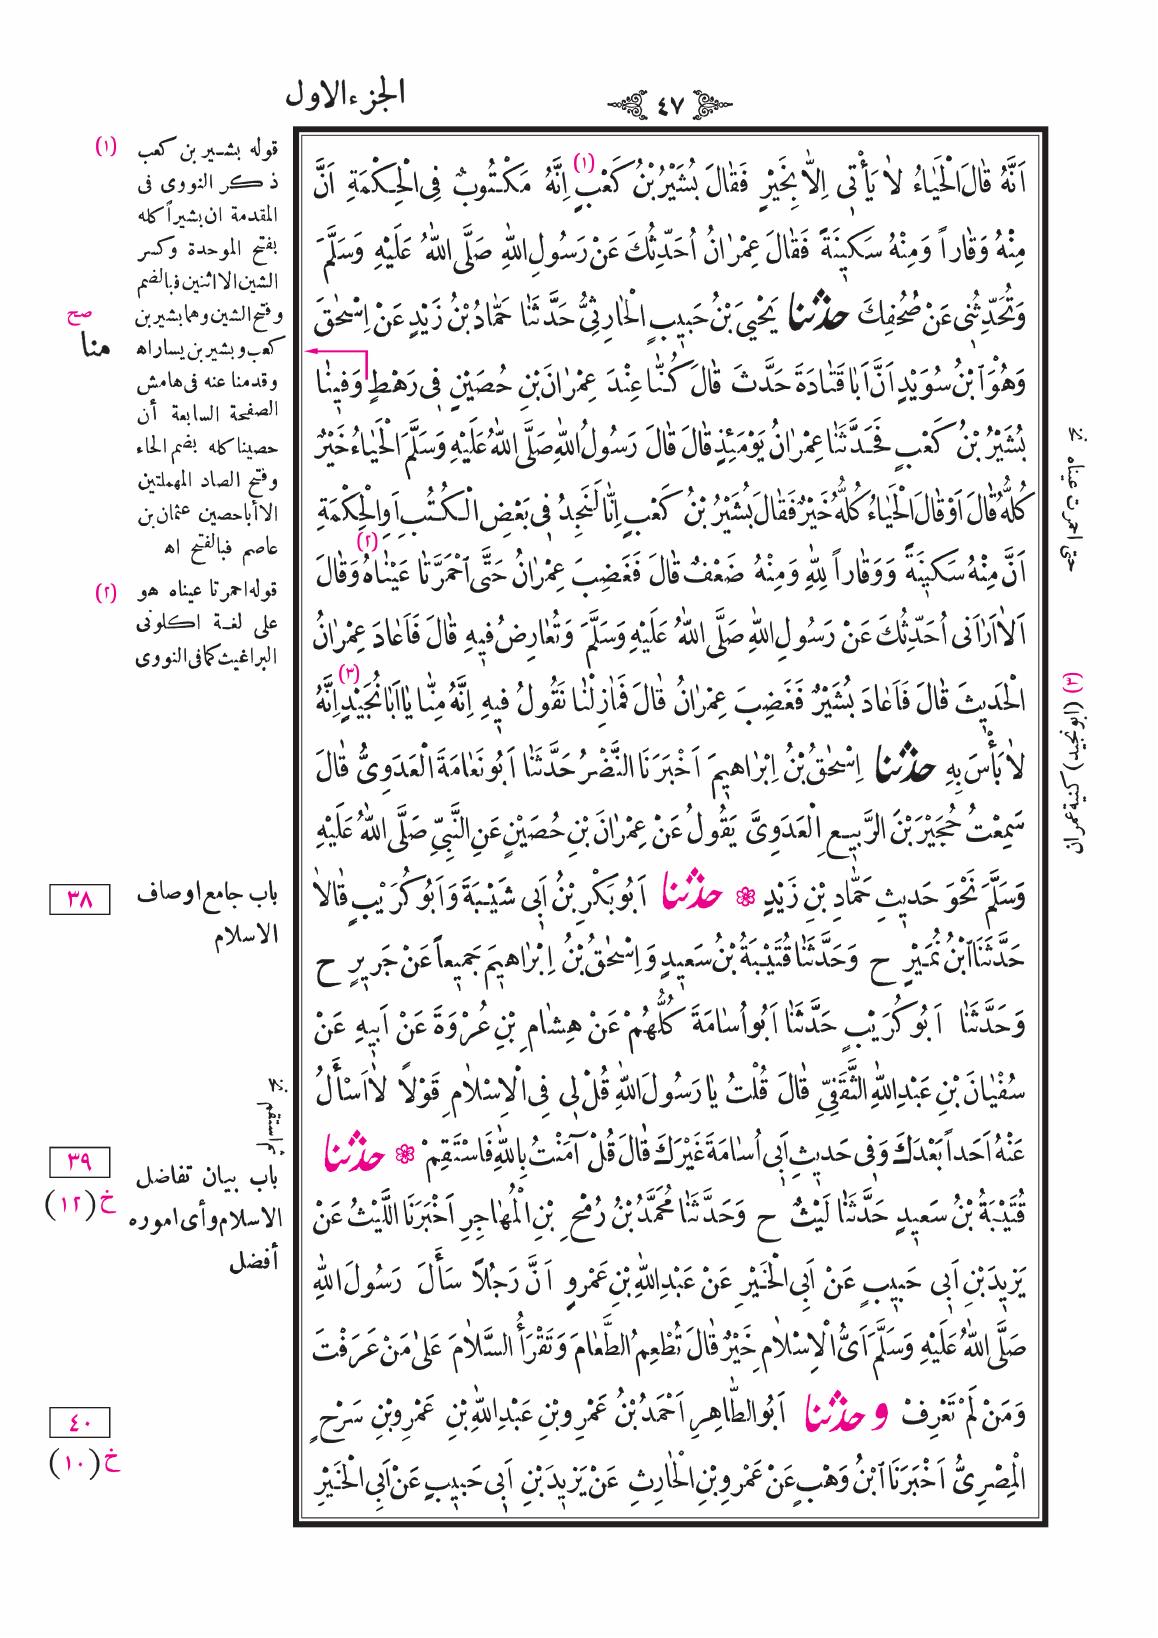 ٤٧
الجزء الاول
اَنَّهُ قَالَ الْحَيَاءُ لَا يَأْتِي اِلَّا بِخَيْرٍ فَقَالَ بُشَيْرُ بْنُ كَعْبٍ (١) اِنَّهُ مَكْتُوبٌ فِي الْحِكْمَةِ اَنَّ
مِنْهُ وَقَاراً وَمِنْهُ سَكِينَةً فَقَالَ عِمْرَانُ اُحَدِّثُكَ عَنْ رَسُولِ اللهِ صَلَّى اللهُ عَلَيْهِ وَسَلَّمَ
وَتُحَدِّثُنِي عَنْ صُحُفِكَ حدثنا يَحْيَى بْنُ حَبِيبٍ الْحَارِثِيُّ حَدَّثَنَا حَمَّادُ بْنُ زَيْدٍ عَنْ اِسْحٰقَ
وَهُوَ ابْنُ سُوَيْدٍ اَنَّ اَبَا قَتَادَةَ حَدَّثَ قَالَ كُنَّا عِنْدَ عِمْرَانَ بْنِ حُصَيْنٍ فِي رَهْطٍ وَفِينَا
بُشَيْرُ بْنُ كَعْبٍ فَحَدَّثَنَا عِمْرَانُ يَوْمَئِذٍ قَالَ قَالَ رَسُولُ اللهِ صَلَّى اللهُ عَلَيْهِ وَسَلَّمَ الْحَيَاءُ خَيْرٌ
كُلُّهُ قَالَ اَوْ قَالَ الْحَيَاءُ كُلُّهُ خَيْرٌ فَقَالَ بُشَيْرُ بْنُ كَعْبٍ اِنَّا لَنَجِدُ فِي بَعْضِ الْكُتُبِ اَوِ الْحِكْمَةِ
اَنَّ مِنْهُ سَكِينَةً وَوَقَاراً لِلّٰهِ وَمِنْهُ ضَعْفٌ قَالَ فَغَضِبَ عِمْرَانُ حَتَّى احْمَرَّتَا عَيْنَاهُ (٢) وَقَالَ
اَلَا اَرَانِي اُحَدِّثُكَ عَنْ رَسُولِ اللهِ صَلَّى اللهُ عَلَيْهِ وَسَلَّمَ وَتُعَارِضُ فِيهِ قَالَ فَاَعَادَ عِمْرَانُ
الْحَدِيثَ قَالَ فَاَعَادَ بُشَيْرٌ فَغَضِبَ عِمْرَانُ قَالَ فَمَا زِلْنَا نَقُولُ فِيهِ اِنَّهُ مِنَّا يَا اَبَا نُجَيْدٍ (٣) اِنَّهُ
لَا بَأْسَ بِهِ حدثنا اِسْحٰقُ بْنُ اِبْرَاهِيمَ اَخْبَرَنَا النَّضْرُ حَدَّثَنَا اَبُو نَعَامَةَ الْعَدَوِيُّ قَالَ
سَمِعْتُ حُجَيْرَ بْنَ الرَّبِيعِ الْعَدَوِيَّ يَقُولُ عَنْ عِمْرَانَ بْنِ حُصَيْنٍ عَنِ النَّبِيِّ صَلَّى اللهُ عَلَيْهِ
وَسَلَّمَ نَحْوَ حَدِيثِ حَمَّادِ بْنِ زَيْدٍ ۞ حدثنا اَبُو بَكْرِ بْنُ اَبِي شَيْبَةَ وَاَبُو كُرَيْبٍ قَالَا
حَدَّثَنَا ابْنُ نُمَيْرٍ ح وَحَدَّثَنَا قُتَيْبَةُ بْنُ سَعِيدٍ وَاِسْحٰقُ بْنُ اِبْرَاهِيمَ جَمِيعاً عَنْ جَرِيرٍ ح
وَحَدَّثَنَا اَبُو كُرَيْبٍ حَدَّثَنَا اَبُو اُسَامَةَ كُلُّهُمْ عَنْ هِشَامِ بْنِ عُرْوَةَ عَنْ اَبِيهِ عَنْ
سُفْيَانَ بْنِ عَبْدِ اللهِ الثَّقَفِيِّ قَالَ قُلْتُ يَا رَسُولَ اللهِ قُلْ لِي فِي الْاِسْلَامِ قَوْلاً لَا اَسْأَلُ
عَنْهُ اَحَداً بَعْدَكَ وَفِي حَدِيثِ اَبِي اُسَامَةَ غَيْرَكَ قَالَ قُلْ آمَنْتُ بِاللهِ فَاسْتَقِمْ ۞ حدثنا
قُتَيْبَةُ بْنُ سَعِيدٍ حَدَّثَنَا لَيْثٌ ح وَحَدَّثَنَا مُحَمَّدُ بْنُ رُمْحِ بْنِ الْمُهَاجِرِ اَخْبَرَنَا اللَّيْثُ عَنْ
يَزِيدَ بْنِ اَبِي حَبِيبٍ عَنْ اَبِي الْخَيْرِ عَنْ عَبْدِ اللهِ بْنِ عَمْرٍو اَنَّ رَجُلاً سَأَلَ رَسُولَ اللهِ
صَلَّى اللهُ عَلَيْهِ وَسَلَّمَ اَيُّ الْاِسْلَامِ خَيْرٌ قَالَ تُطْعِمُ الطَّعَامَ وَتَقْرَأُ السَّلَامَ عَلَى مَنْ عَرَفْتَ
وَمَنْ لَمْ تَعْرِفْ وحدثنا اَبُو الطَّاهِرِ اَحْمَدُ بْنُ عَمْرِو بْنِ عَبْدِ اللهِ بْنِ عَمْرِو بْنِ سَرْحٍ
الْمِصْرِيُّ اَخْبَرَنَا ابْنُ وَهْبٍ عَنْ عَمْرِو بْنِ الْحَارِثِ عَنْ يَزِيدَ بْنِ اَبِي حَبِيبٍ عَنْ اَبِي الْخَيْرِ
(١) قوله بشير بن كعب
ذكر النووى فى
المقدمة ان بشيراً كله
بفتح الموحدة وكسر
الشين الا اثنين فبالضم
وفتح الشين وهما بشير بن
كعب وبشير بن يسار اه
وقدمنا عنه فى هامش
الصفحة السابعة أن
حصينا كله بضم الحاء
وفتح الصاد المهملتين
الا أبا حصين عثمان بن
عاصم فبالفتح اه
(٢) قوله احمرتا عيناه هو
على لغة اكلونى
البراغيث كما فى النووى
صح
منا
حتى احمرت عيناه نخ
(٣) (ابو نجيد) كنية عمران
٣٨
باب جامع اوصاف
الاسلام
ثم استقم نخ
٣٩
خ (١٢)
باب بيان تفاضل
الاسلام وأى اموره
أفضل
٤٠
خ (١٠)